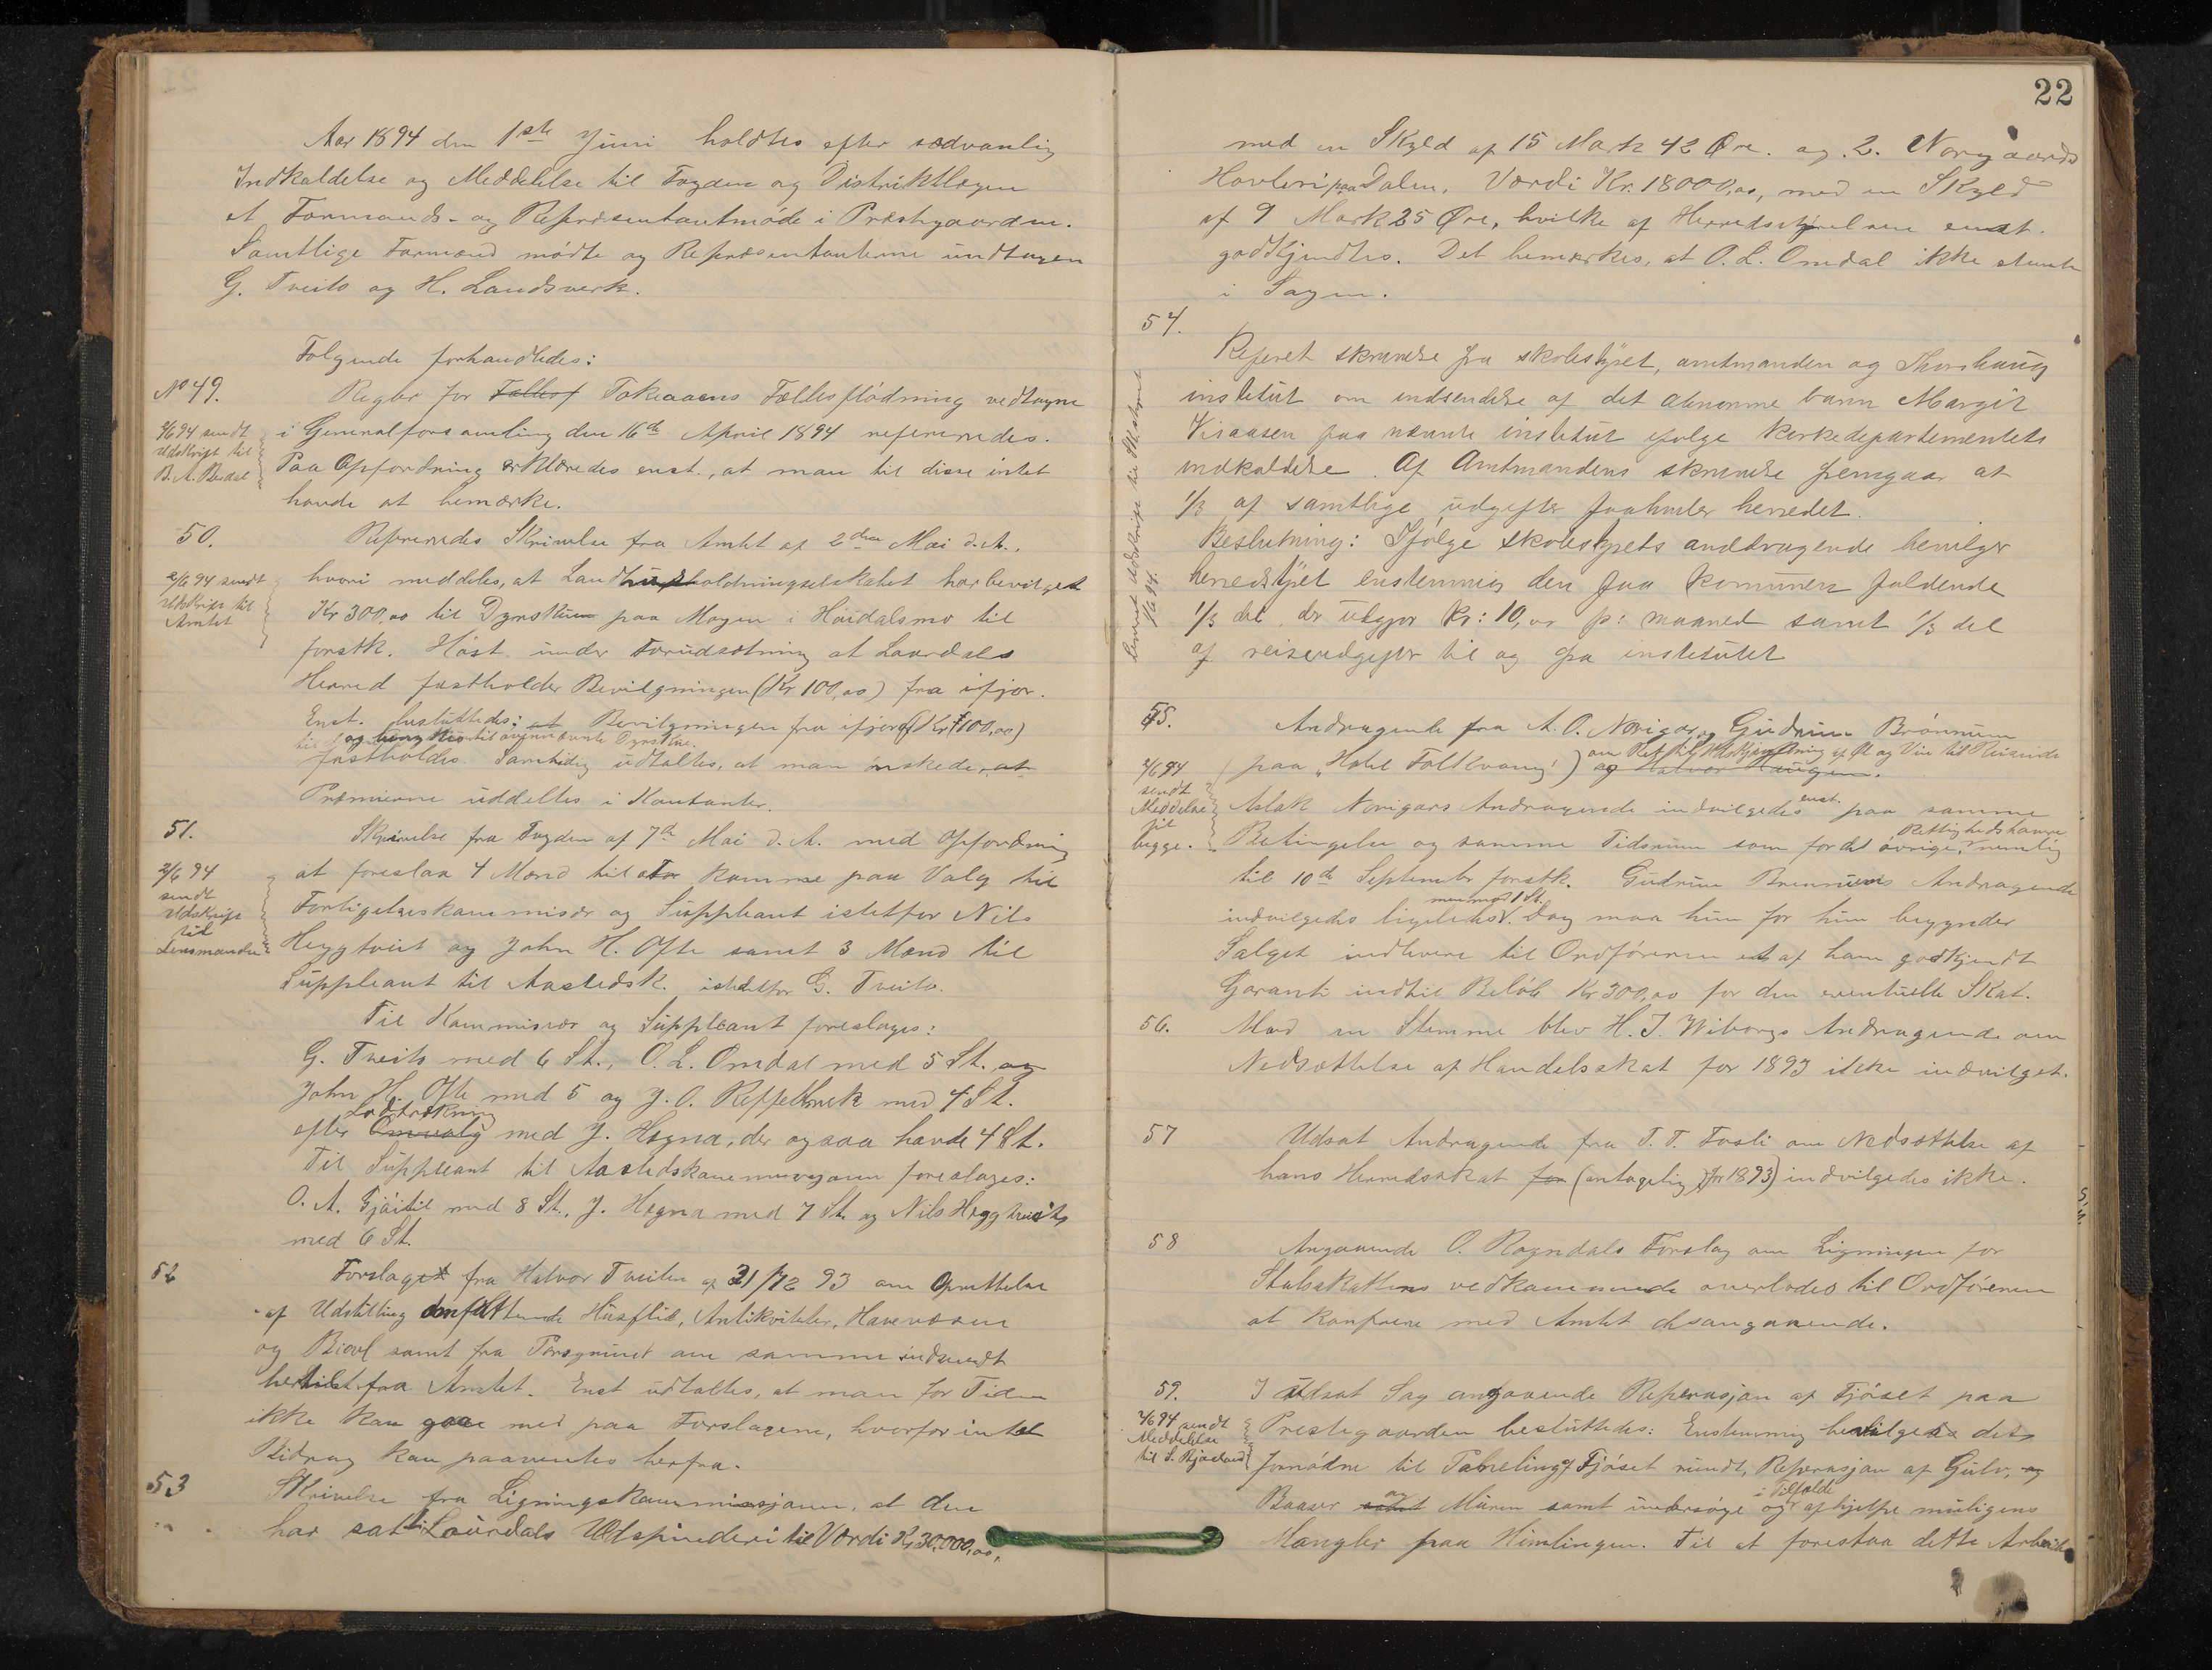 Aar 1894 den 1ste Juni holdtes efter sædvanlig
Indkaldelse og Meddelelse til Fogden og Distriktlægen
et Formands- og Repræsentantmøde i Præstegaarden.
Samtlige Formænd mødte og Repræsentanterne undtagen
G. Tveito og H. Landsverk.
Følgende forhandledes:
No 49.
Regler for Fællesf Tokeaaens Fællesflødning vedtagne
i Generalforsamling den 16de April 1894 refereredes.
Paa Opfordring erklæredes enst., at man til disse intet
havde at bemærke.
2/6 94 sendt
Udskrift til
B. A. Berdal
50.
Refereredes Skrivelse fra Amtet af 2den Mai d. A.,
hvori meddeles, at Landhusholdningselskabet har bevilget
Kr 300,00 til Dyrskue paa Mogen i Høidalsmo til
forstk. Høst under Forudsætning at Laardals
Herred fastholder Bevilgningen (Kr 100,00) fra ifjor.
Enst. besluttedes: at Bevilgningen fra ifjor (Kr 100,00)
til ovennævnte Dyrskue
fastholdes. Samtidig udtaltes, at man ønskede, at
Præmierne uddeltes i Kontanter.
2/6 94 sendt
Udskrift til
Amtet
51.
Skrivelse fra Fogden af 7de Mai d. A. med Opfordring
at foreslaa 4 Mænd til at komme paa Valg til
Forligelseskommisær og Suppleant istetfor Nils
Heggtveit og John H. Ofte samt 3 Mænd til
Suppleant til Aastedsk. istedetfor G. Tveito.
2/6 94
sendt
Udskrift
til
Lensmanden
Til Kommissær og Suppleant foreslages:
G. Tveito med 6 St., O. L. Omdal med 5 St. og
John H. Ofte med 5 og J. O. med 4 St.
Lodtrækning
efter Omvalg med J. Hegna, der ogsaa havde 4 St.
Til Suppleant til foreslages:
O. A. med 8 St., J. Hegna med 7 St. og Nils Heggtveit
med 6 St.
52
Forslaget fra Halvor Tveiten af 31/12 93 om Oprettelse
af Udstilling omfattende Husflid, Antikviteter, Havevæsen
og Biavl samt fra om samme indsendt
hertil fra Amtet. Enst udtaltes, at man for Tiden
ikke kan gaa med paa Forslagene, hvorfor intet
Bidrag kan paaventes herfra.
53
Skrivelse fra Ligningskommissjonen, at den
har sat Laurdals Uldspinderi til Værdi Kr 30,000,00,
22
med en Skyld af 15 Mark 42 Øre. og 2. Norgaards
Høvleri paa Dalen. Værdi Kr. 18000,00, med en Skyld
af 9 Mark 25 Øre, hvilke af Herredsstyrelsen enst.
godkjendtes. Det bemærkes, at O. L. Omdal ikke stemte
i Sagen.
54.
Referet skrivelse fra skolestyret, amtmanden og Thorshaug
institut om indsendelse af det abnorme barn Margit
Visaasen paa nævnte institut ifølge kirkedepartementets
indkaldelse. Af Amtmandens skrivelse fremgaar at
1/3 af samtlige udgifter paahviler herredet.
Beslutning: Ifølge skolestyrets anddragende bevilger
herredstyret enstemmig den paa kommunen faldende
1/3 del, der udgjør kr: 10,00 pr: maaned samt 1/3 del
af reiseudgifter til og fra institutet
55.
Andragende fra A. O. Norigar og Gudrun Brønnum
paa "Hotel Folkvang") om Ret til Udskjænkning af Øl og Vin til Reisende
og Halvor Haugen.
Aslak Norigars Andragende indvilgedes enst. paa samme
Betingelser og samme Tidsrum som for det øvrige Rettighedshavere nemlig
til 10de September forstk. Gudrun Brønnums Andragende
men mod 1 St.
indvilgedes ligeledes. Dog maa hun før hun begynder
Salget indlevere til Ordføreren et af ham godkjendt
Garanti indtil Beløb Kr 300,00 for den eventuelle Skat.
2/6 94
sendt
Meddelse
til
begge.
56.
Mod en Stemme blev H. J. Wiborgs Andragende om
Nedsættelse af Handelsskat for 1893 ikke indvilget.
57
Udsat Andragende fra T. T. Fosli om Nedsættelse af
hans Herredsskat for (antagelig for 1893) indvilgedes ikke.
58
Angaaende O. Rogndals Forslag om Ligningen for
Statsskattens vedkommende overlodes til Ordføreren
at konferere med Amtet desangaaende.
59.
I udsat Sag angaaende Reperasjon af Fjøset paa
Prestegaarden besluttedes: Enstemmig bevilgedes det
fornødne til Paneling af Fjøset rundt, Reperasjon af Gulv, og
Baaser samt og Muren samt undersøge og i Tilfælde afhjelpe muligens
Mangler paa Himlingen. Til at forestaa dette Arbeide
2/6 94 sendt
Meddelelse